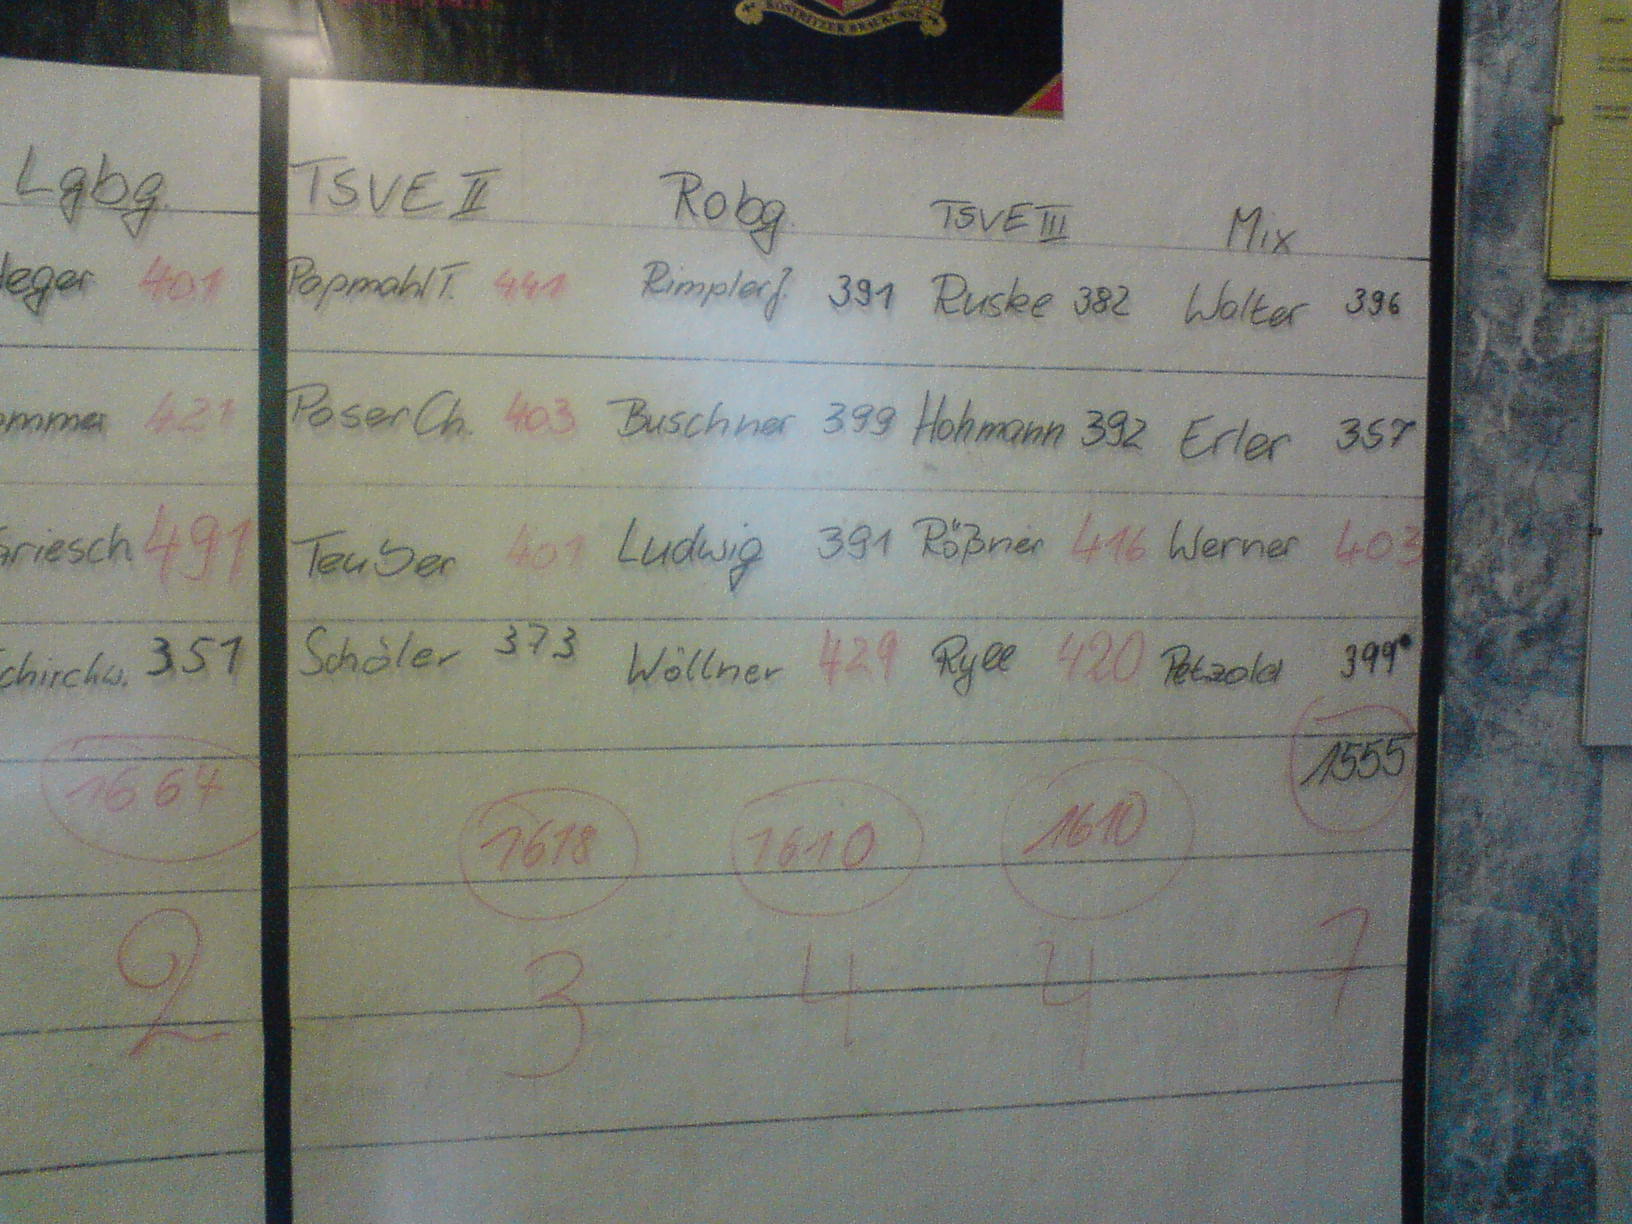 KÖSTRITZER BRAUKUNST
Lgbg. TSVE II Robg. TSVE III Mix
401 Papmahl T. 441 Rimpler J. 391 Ruske 382 Walter 396
421 Poser Ch. 403 Buschner 399 Hohmann 392 Erler 357
491 Teuber 401 Ludwig 391 Rößner 416 Werner 403
351 Schöler 373 Wöllner 429 Ryll 420 Petzold 399
1664 1618 1610 1610 1555
2 3 4 4 7